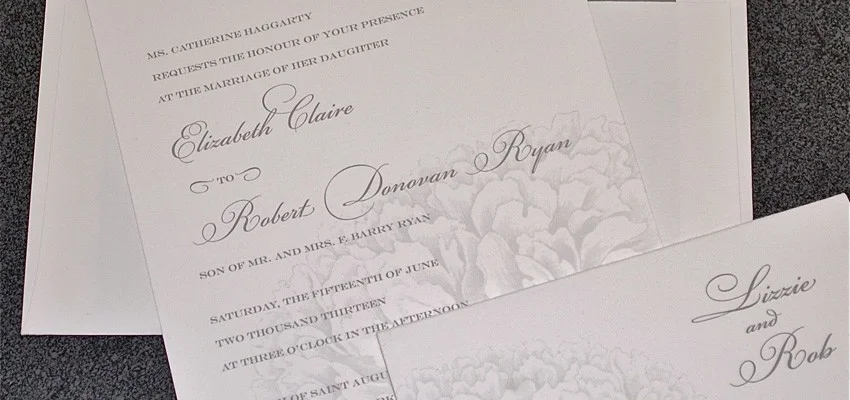 MS. CATHERINE HAGGARTY
REQUESTS THE HONOUR OF YOUR PRESENCE
AT THE MARRIAGE OF HER DAUGHTER
Elizabeth Claire
TO
Robert Donovan Ryan
SON OF MR. AND MRS. F. BARRY RYAN
SATURDAY, THE FIFTEENTH OF JUNE
TWO THOUSAND THIRTEEN
AT THREE O'CLOCK IN THE AFTERNOON
OF SAINT AUGU
Lizzie
and
Rob